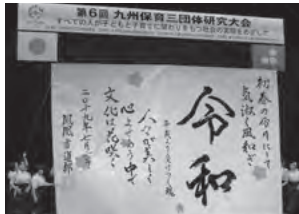 第6回 九州保育三団体研究大会
すべての人が子どもと子育てに関わりをもつ社会の実現をめざして
初春の令月にして
気淑く風和ぎ
令和
人々が美しく
心よせ合う中で
文化は花咲く
十九年七月